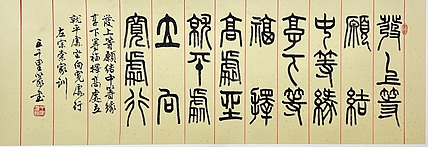 發上等
願結
中等緣
享下等
福擇
高處
就平處
立向
寬處行
發上等願結中等緣
享下等福擇高處立
就平處向寬處行
左宗棠家訓